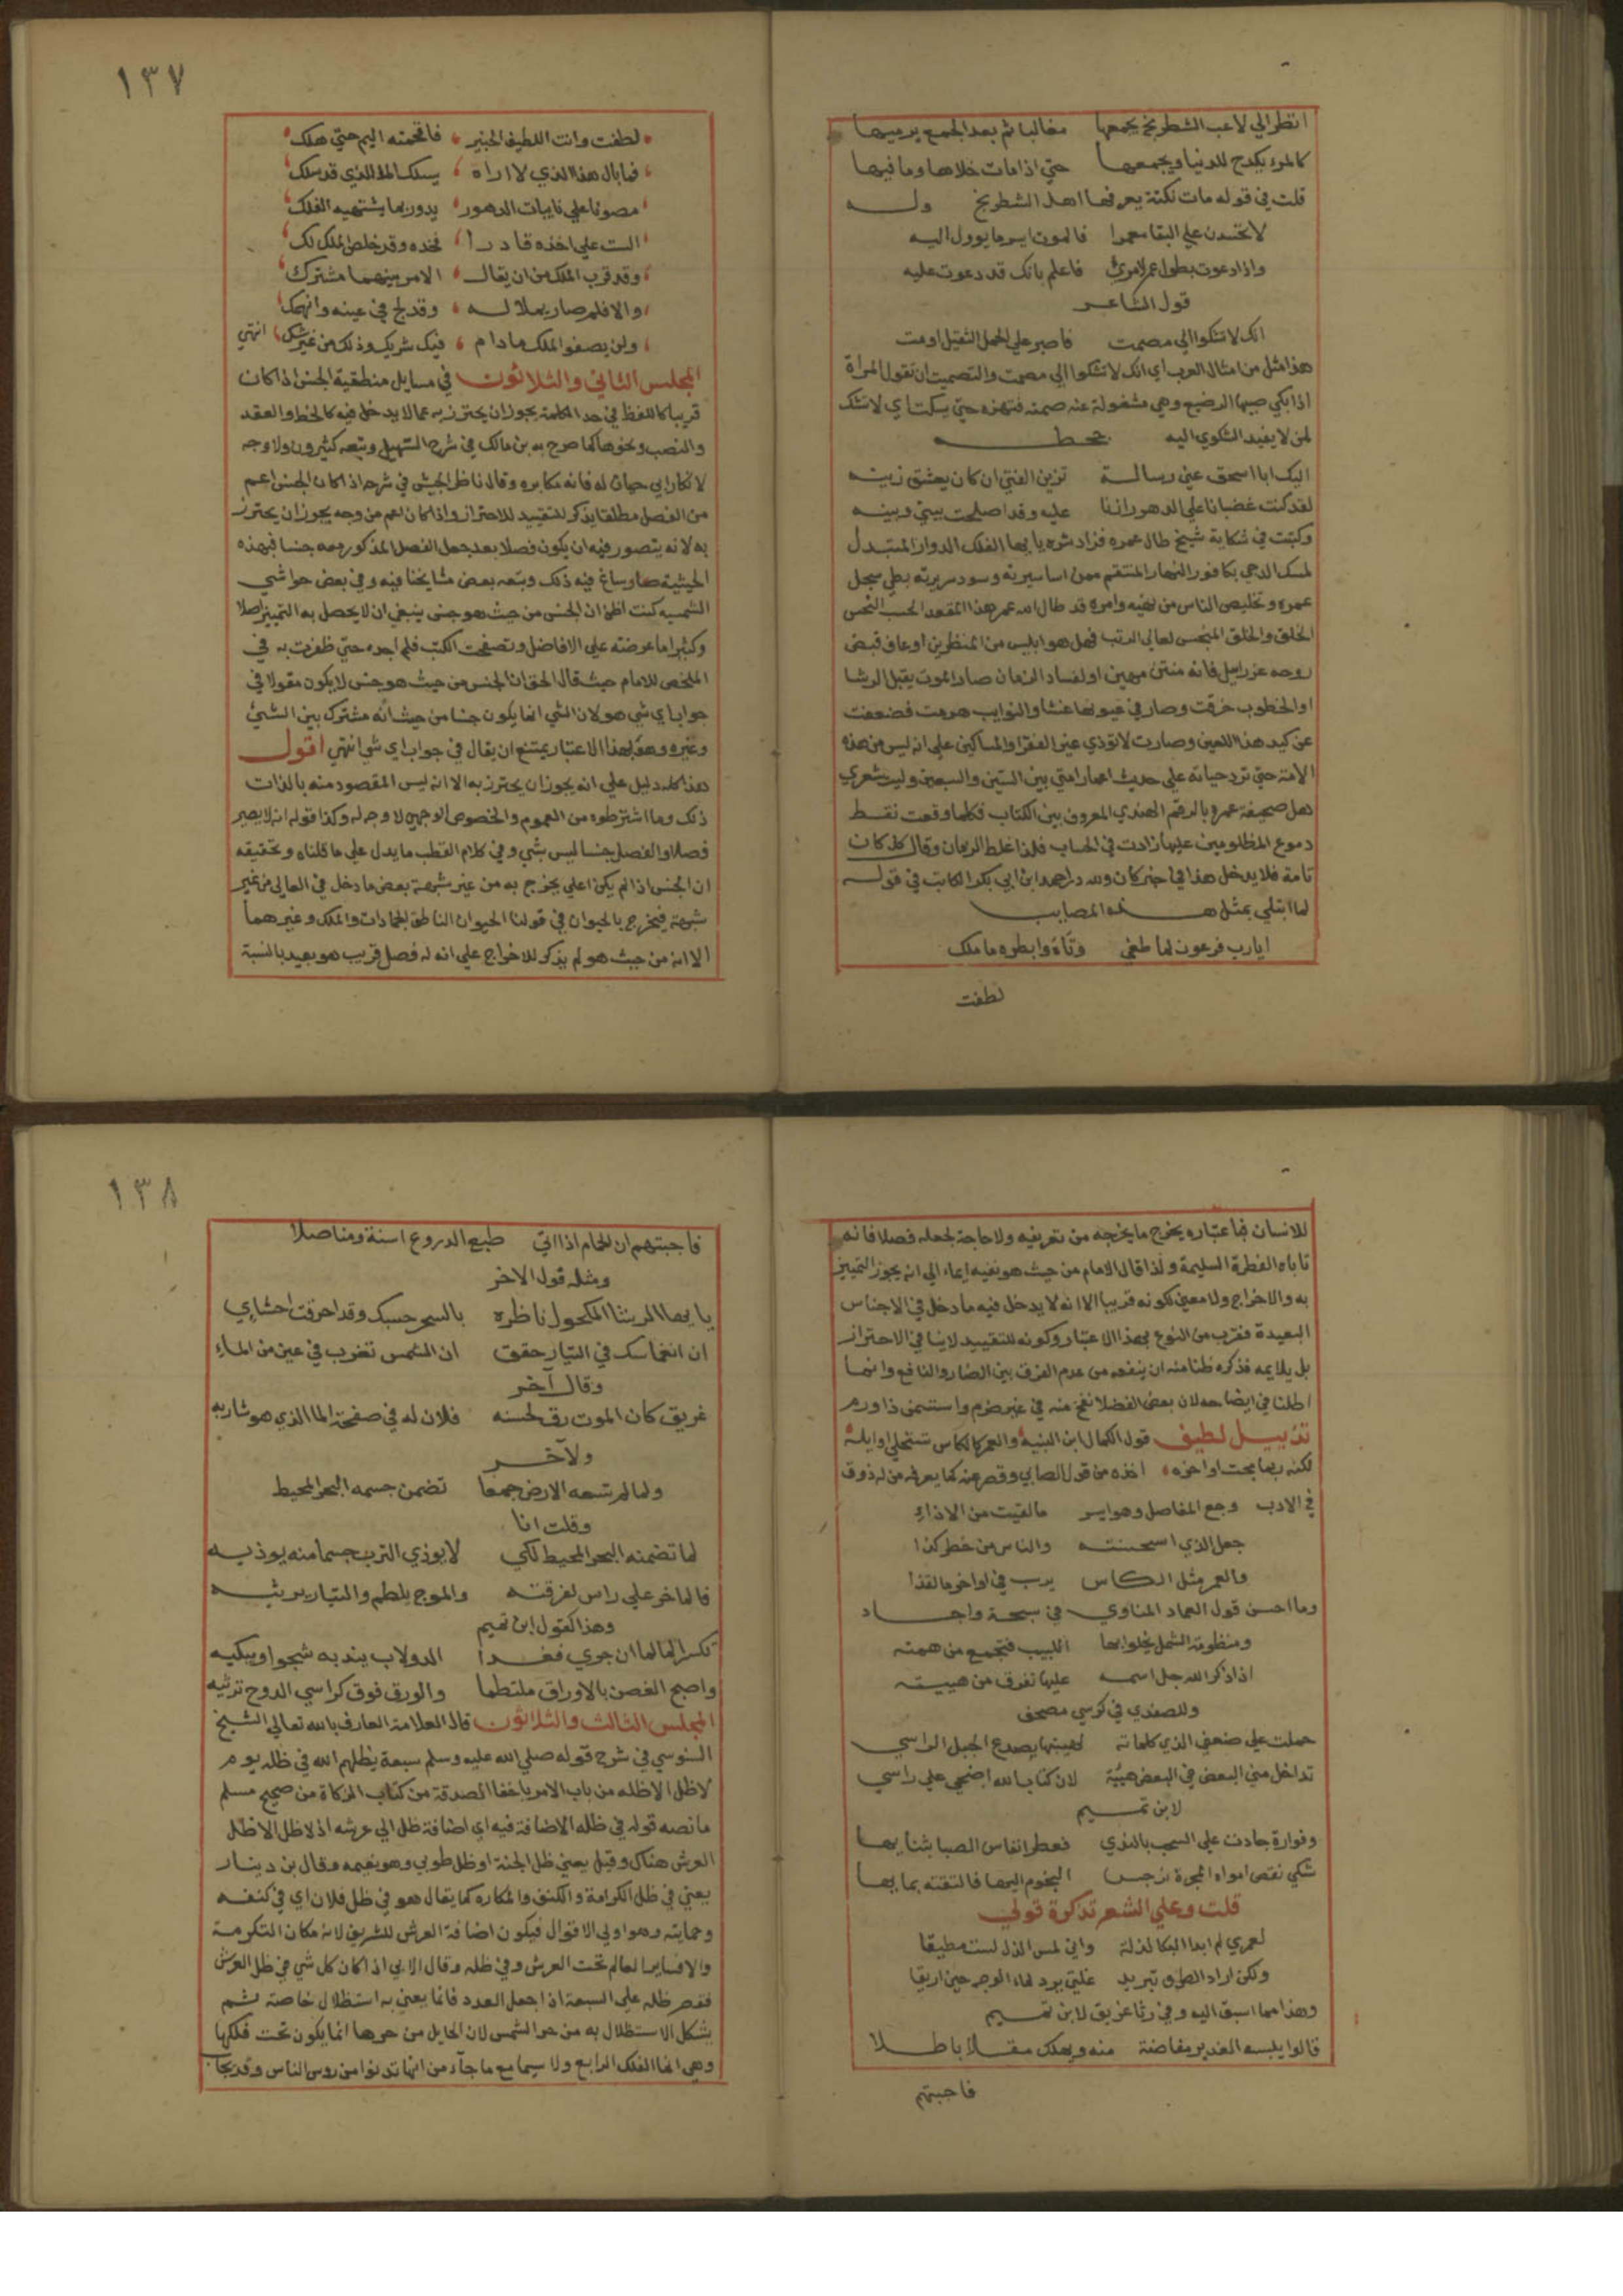 انظر الي لاعب الشطرنج يجمعها مغالبا ثم بعد الجمع يرميها
كالمرء يكدح للدنيا ويجمعها حتي اذا مات خلاها وما فيها
قلت في قوله مات نكتة يعرفها اهل الشطرنج وله
لا تحسدن علي البقا معمرا فالموت ايسر ما يوول اليه
واذا دعوت بطول عمر لامرئ فاعلم بانك قد دعوت عليه
قول الشاعر
انك لا تشكوا الي مصمت فاصبر علي الحمل الثقيل او مت
هذا مثل من امثال العرب اي انك لا تشكوا الي مصمت والتصميت ان تقول المراة
اذا بكي صبيها الرضيع وهي مشغولة عنه صمته فتهزه حتي يسكت اي لا تشك
لمن لا يفيد الشكوي اليه
اليك ابا اسحق عني رسالة تزين الفتي ان كان يعشق زينه
لقد كنت غضبانا علي الدهر زاننا عليه وقد اصلحت بيني وبينه
وكتبت في شكاية شيخ طال عمره فزاد شره يا ايها الفلك الدوار المتبدل
لمسك الدجي بكافور النهار المنتقم ممن اسا سيرته وسود سريرته بطي سجل
عمره وتخليص الناس من نهيه وامره قد طال امد عمر هذا المقعد الحسب النحس
الخلق والخلق المبخس لعالي الرتب فهل هو ابليس من المنظرين او عاف قبض
روحه عزرائيل فانه منتن مهين او لفساد الزمان صار الموت يقبل الرشا
او الخطوب خرقت وصار في عيونها غشا والنوايب هرمت فضعفت
عن كيد هذا اللعين وصارت لا تؤذي غير الفقرا والمساكين علي انه ليس من هذه
الامة حتي ترد حياته علي حديث اعمار امتي بين الستين والسبعين وليت شعري
هل صحيفة عمره بالرقم الهندي المعروف بين الكتاب فكلما وقعت نقط
دموع المظلومين عليها زادت في الحساب فلذا غلط الزمان وقال كل كان
تامة فلا يدخل هذا في خبر كان ولله در احمد ابن ابي بكر الكاتب في قوله
لما ابتلي بمثل هذه المصايب
ايا رب فرعون لما طغي وتاه وابطره ما ملك
لطفت
١٣٧
لطفت وانت اللطيف الخبير فاقحمته اليم حتي هلك
فما بال هذا الذي لا اراه يسلك الا الذي قد سلك
مصونا علي نايبات الدهور يدور بما يشتهيه الفلك
الست علي اخذه قادرا فخذه وقد خلص الملك لك
وقد قرب الملك من ان يقال الامر بينهما مشترك
والا فلم صار يملا له وقد لج في غيه وانهمك
ولن يصفو الملك ما دام فيك شريك وذلك من غير شك انتهي
المجلس الثاني والثلاثون في مسايل منطقية الجنس اذا كان
قريبا كاللفظ في حد الكلمة يجوز ان يحترز به عما لا يدخل فيه كالخط والعقد
والنصب ونحوها كما صرح به بن مالك في شرح التسهيل وتبعه كثيرون ولا وجه
لانكار ابي حيان له فانه مكابره وقال ناظر الجيش في شرحه اذا كان الجنس اعم
من الفصل مطلقا يذكر للتقييد للاحتراز واذا كان اعم من وجه يجوز ان يحترز
به لانه يتصور فيه ان يكون فصلا بعد جعل الفصل المذكور معه جنسا فبهذه
الحيثية صار ساغ فيه ذلك وتبعه بعض مشايخنا فيه وفي بعض حواشي
الشمسيه كنت اظن ان الجنس من حيث هو جنس ينبغي ان لا يحصل به التمييز اصلا
وكثيرا ما عرضته علي الافاضل وتصفحت الكتب فلم اجده حتي ظفرت به في
الملخص للامام حيث قال الحق ان الجنس من حيث هو جنس لا يكون مقولا في
جواب اي شي هو لان الشي انما يكون جنسا من حيث انه مشترك بين الشئ
وغيره وهو بهذا الاعتبار يمتنع ان يقال في جواب اي شي انتهي اقول
هذا كله دليل علي انه يجوز ان يحترز به الا انه ليس المقصود منه بالذات
ذلك وما اشترطوه من العموم والخصوص الوجهي لا وجه له وكذا قوله انه لا يصير
فصلا والفصل جنسا ليس بشي وفي كلام القطب ما يدل علي ما قلناه وتحقيقه
ان الجنس اذا لم يكن اعلي يخرج به من غير شبهة بعض ما دخل في العالي من غير
شبهة فيخرج بالحيوان في قولنا الحيوان الناطق الجمادات والملك وغيرهما
الا انه من حيث هو لم يذكر للاخراج علي انه له فصل قريب هو بعيد بالنسبة
للانسان فباعتباره يخرج ما يخرجه من تعريفه ولا حاجة لجعله فصلا فانه
تاباه الفطرة السليمة ولذا قال الامام من حيث هو نفيه ايماء الي انه يجوز التمييز
به والاخراج ولا معني لكونه قريبا الا انه لا يدخل فيه ما دخل في الاجناس
البعيدة فقرب من النوع بهذا الاعتبار وكونه للتقييد لا ينافي الاحتراز
بل يلايمه فذكره ظنا منه ان ينفعه من عدم الفرق بين الضار والنافع وانما
اطلنا في ايضاحه لان بعض الفضلا نفخ منه في غير ضرم واستسمن ذا ورم
تذييل لطيف قول الكمال ابن النبيه والعمر كالكاس تستحلي اوايله
لكنه ربما مجت اواخره اخذه من قول الصابي وقصر عنه كما يعرفه من له ذوق
في الادب وجع المفاصل وهو ايسر ما لقيت من الاذاء
جعل الذي استحسنته والناس من خطر كذا
والعمر مثل الكاس يرسب في اواخرها القذا
وما احسن قول العماد المناوي في سبحة واجاد
ومنظومة الشمل يخلو بها اللبيب فتجمع من همته
اذا ذكر الله جل اسمه عليها تفرق من هيبته
وللصفدي في كرسي مصحف
حملت علي ضعفي الذي كلماته لهيبتها يصدع الجبل الراسي
تداخل مني البعض في البعض هيبة لان كتاب الله اضحي علي راسي
لابن تميم
وفوارة جادت علي السحب بالندي فعطر انفاس الصبا بثنايها
شكي نقص امواه المجرة نرجس النجوم اليها فالتقته بمايها
قلت وعلي الشعر تذكرة قولي
لعمري لم ابد البكا لذلة واني لمس الذل لست مطيقا
ولكن اراد الطرف تبريد غلتي برد لماء الوجه حين اريقا
وهذا مما اسبق اليه وفي رثا غريق لابن تميم
قالوا يلبسه الغدير مفاضة منه ويهلك مقالا باطلا
فاجبتهم
١٣٨
فاجبتهم ان الحمام اذا اتي طبع الدروع اسنة ومناصلا
ومثله قول الاخر
يا ايها الرشا المكحول ناظره بالسحر حسبك وقد احرقت احشايي
ان انغماسك في التيار حقق ان الشمس تغرب في عين من الماء
وقال آخر
غريق كان الموت رق لحسنه فلان له في صفحة الما الذي هو شاربه
ولآخر
ولما لم تسعه الارض جمعا تضمن جسمه البحر المحيط
وقلت انا
لما تضمنه البحر المحيط لكي لا يوذي الترب جسما منه يوذيه
فالما خر علي راس لفرقته والموج يلطم والتيار يرثيه
وهذا كقول ابن تميم
تكسر الما لما ان جري فغدا الدولاب يندبه شجوا ويبكيه
واصبح الغصن بالاوراق ملتطما والورق فوق كراسي الدوح ترثيه
المجلس الثالث والثلاثون قال العلامة العارف بالله تعالي الشيخ
السنوسي في شرح قوله صلي الله عليه وسلم سبعة يظلهم الله في ظله يوم
لا ظل الا ظله من باب الامر باخفا الصدقة من كتاب الزكاة من صحيح مسلم
ما نصه قوله في ظله الاضافة فيه اي اضافة ظل الي عرشه اذ لا ظل الا ظل
العرش هناك وقيل يعني ظل الجنة او ظل طوبي وهو نعيمه وقال بن دينار
يعني في ظل الكرامة والكنف والمكاره كما يقال هو في ظل فلان اي في كنفه
وحمايته وهو اولي الاقوال فيكون اضافة العرش للتشريف لانه مكان التكرمة
والا فساير العالم تحت العرش وفي ظله وقال الابي اذا كان كل شي في ظل العرش
فقصر ظله علي السبعة اذا جعل العدد فانما يعني به استظلال خاصة ثم
يشكل الاستظلال به من حر الشمس لان الحايل من حرها انما يكون تحت فلكها
وهي انما الفلك الرابع ولا سيما مع ما جآء من انها تدنوا من روس الناس وقد يجاب